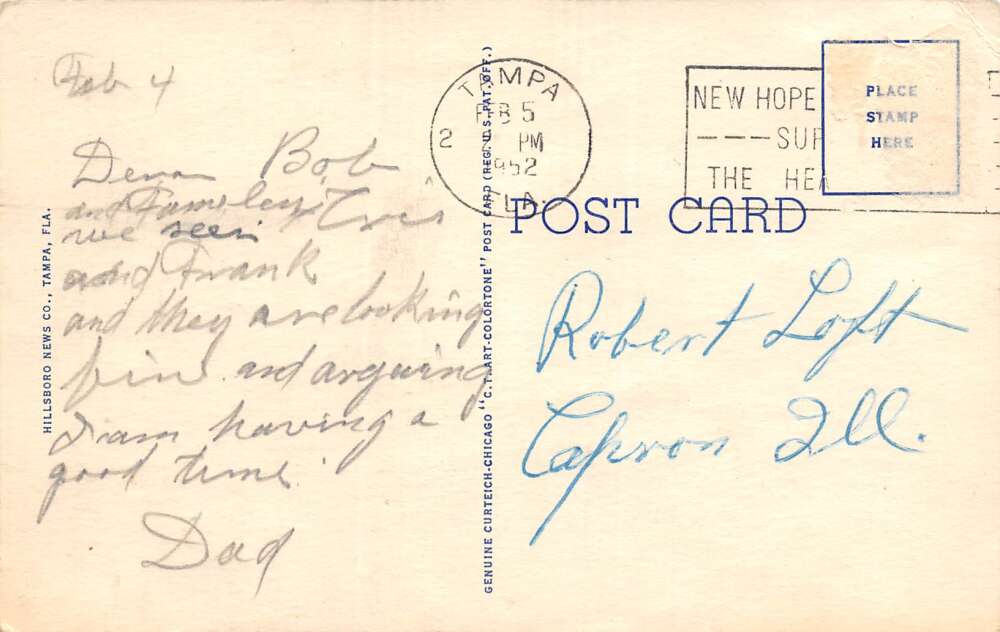 Feb 4
Dear Bob
and Famley
we seen
and Frank
and they are looking
fine and arguing
I am having a
good time.
Dad
HILLSBORO NEWS CO., TAMPA, FLA.
GENUINE CURTEICH-CHICAGO "C.T. ART-COLORTONE" POST CARD (REG. U.S. PAT. OFF.)
TAMPA
FEB 5
2 PM
1952
FLA.
NEW HOPE
SUP
THE HEA
PLACE
STAMP
HERE
POST CARD
Robert Loft
Capron Ill.